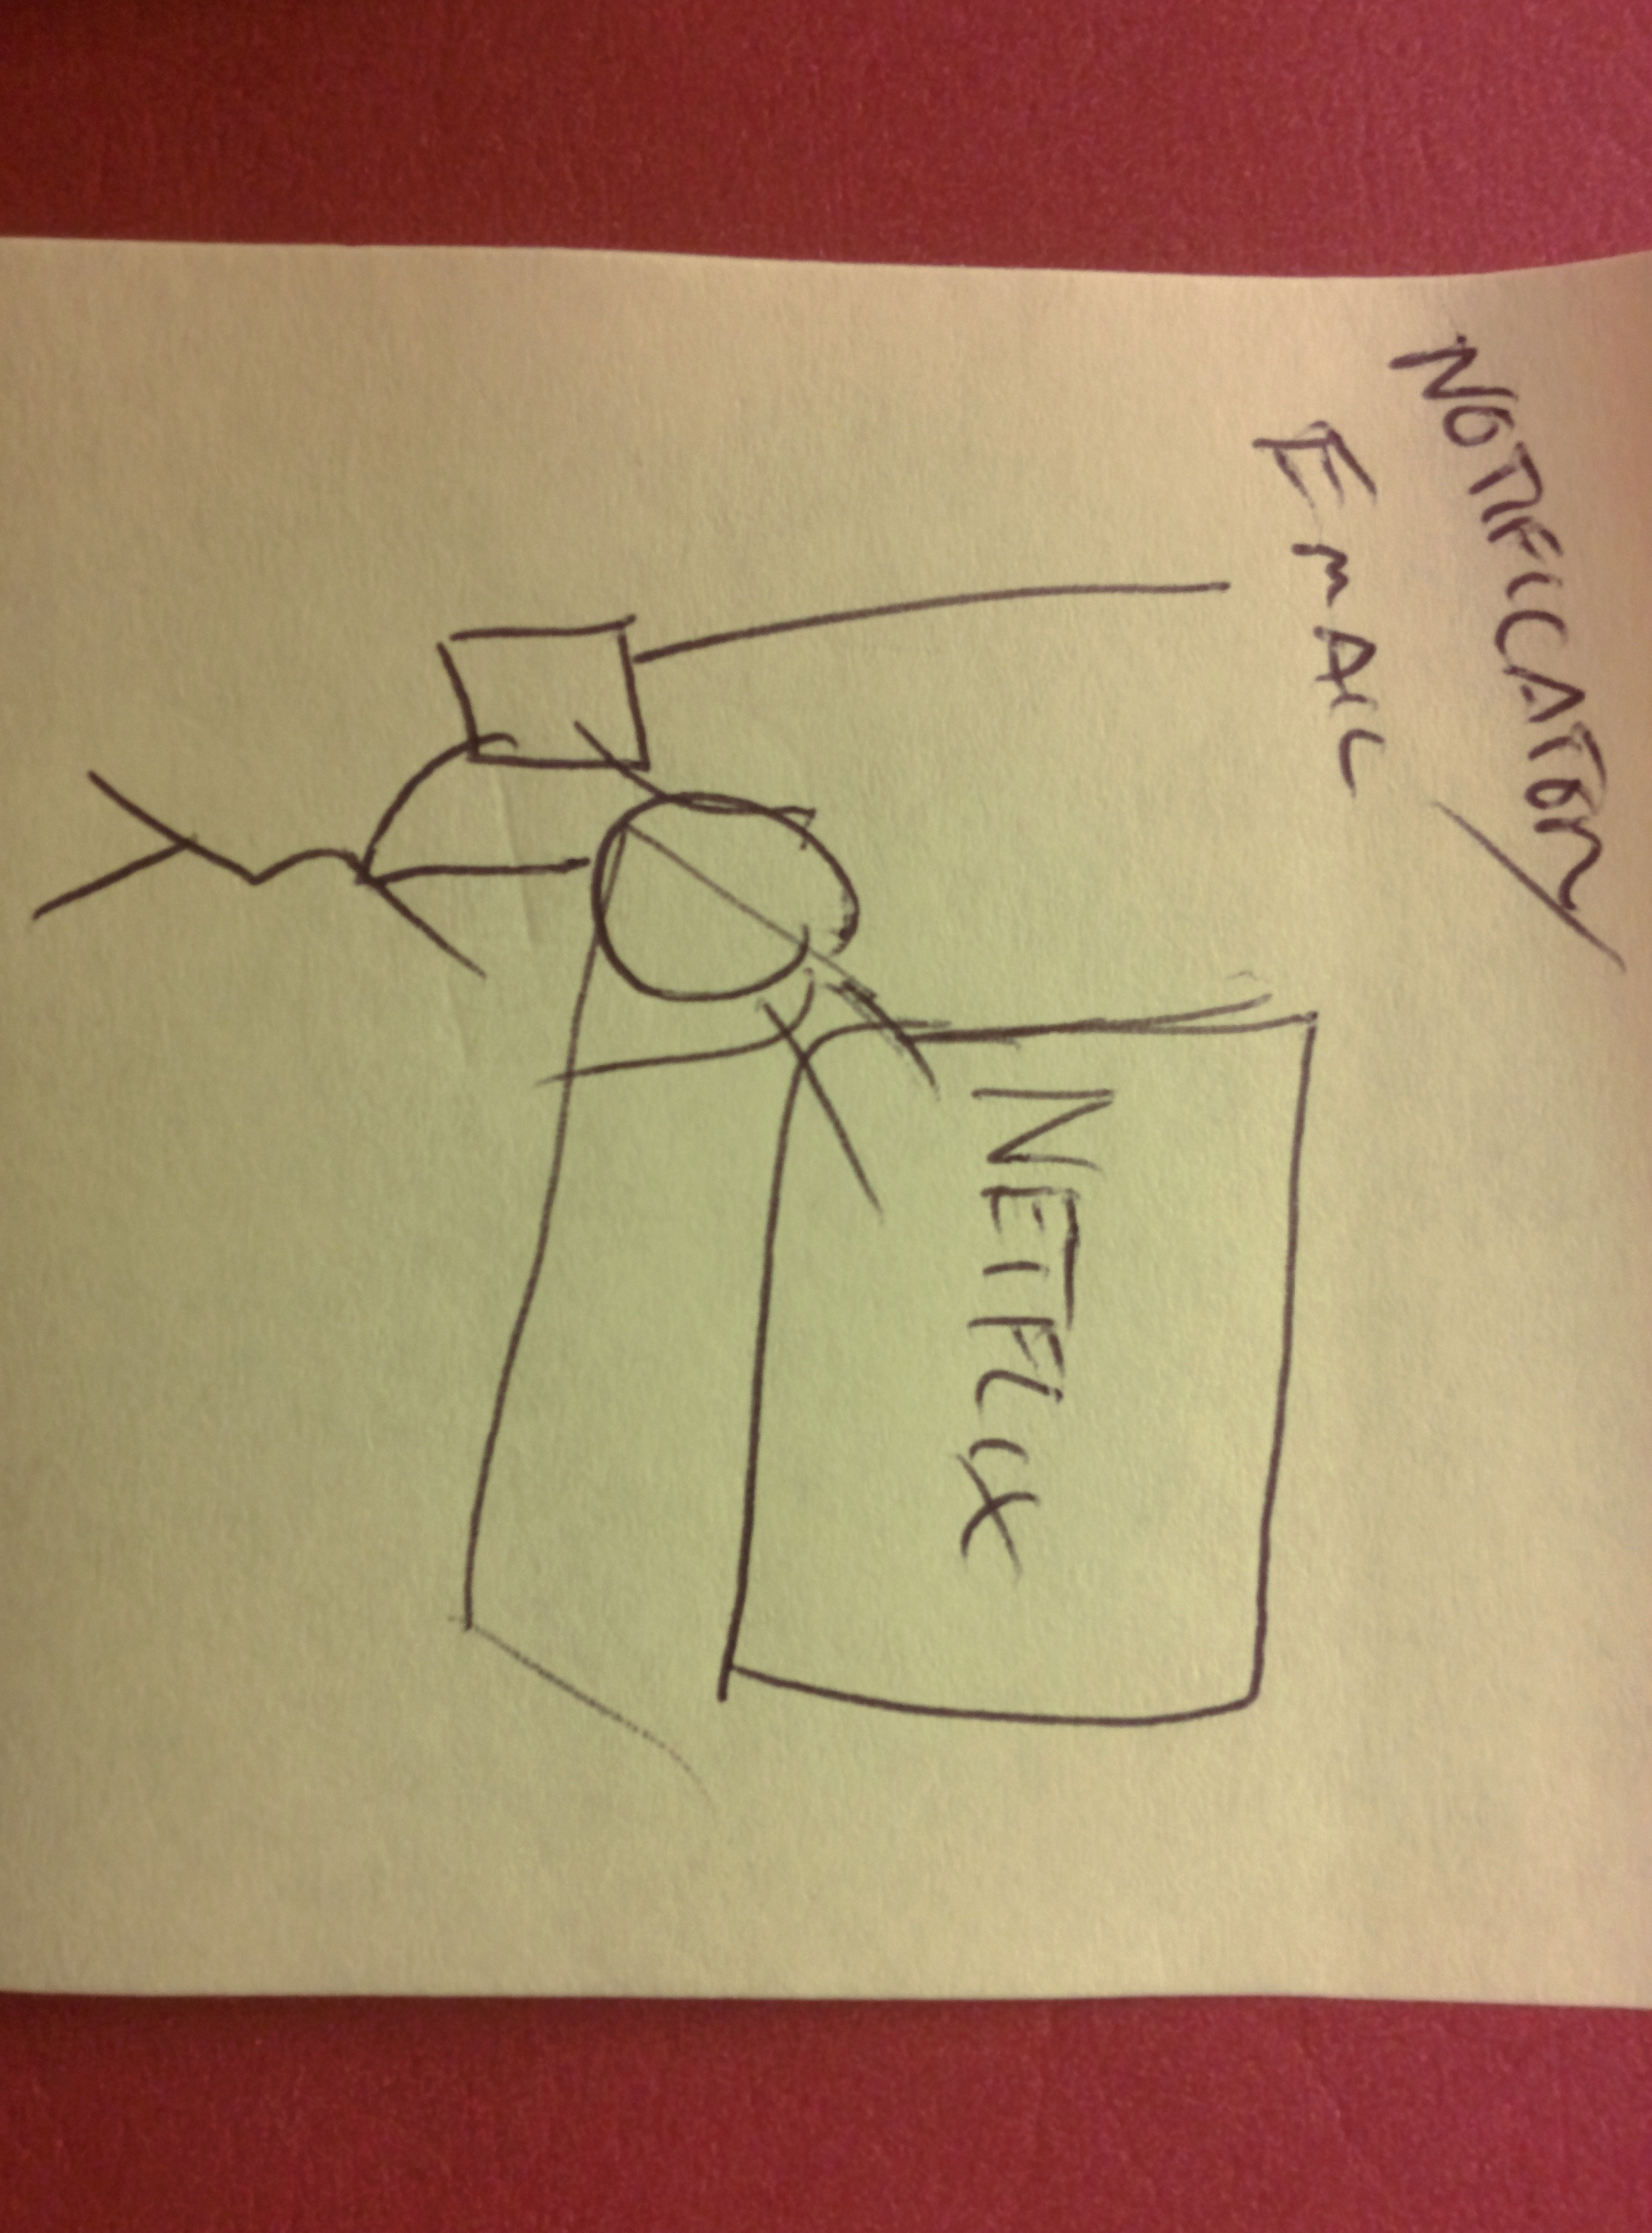 NOTIFICATION/
EMAIL
NETFLIX